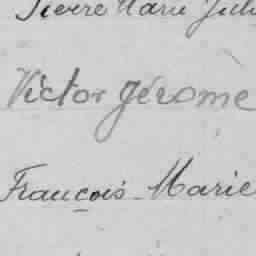 Pierre Marie Jul
Victor Jérome
François Marie